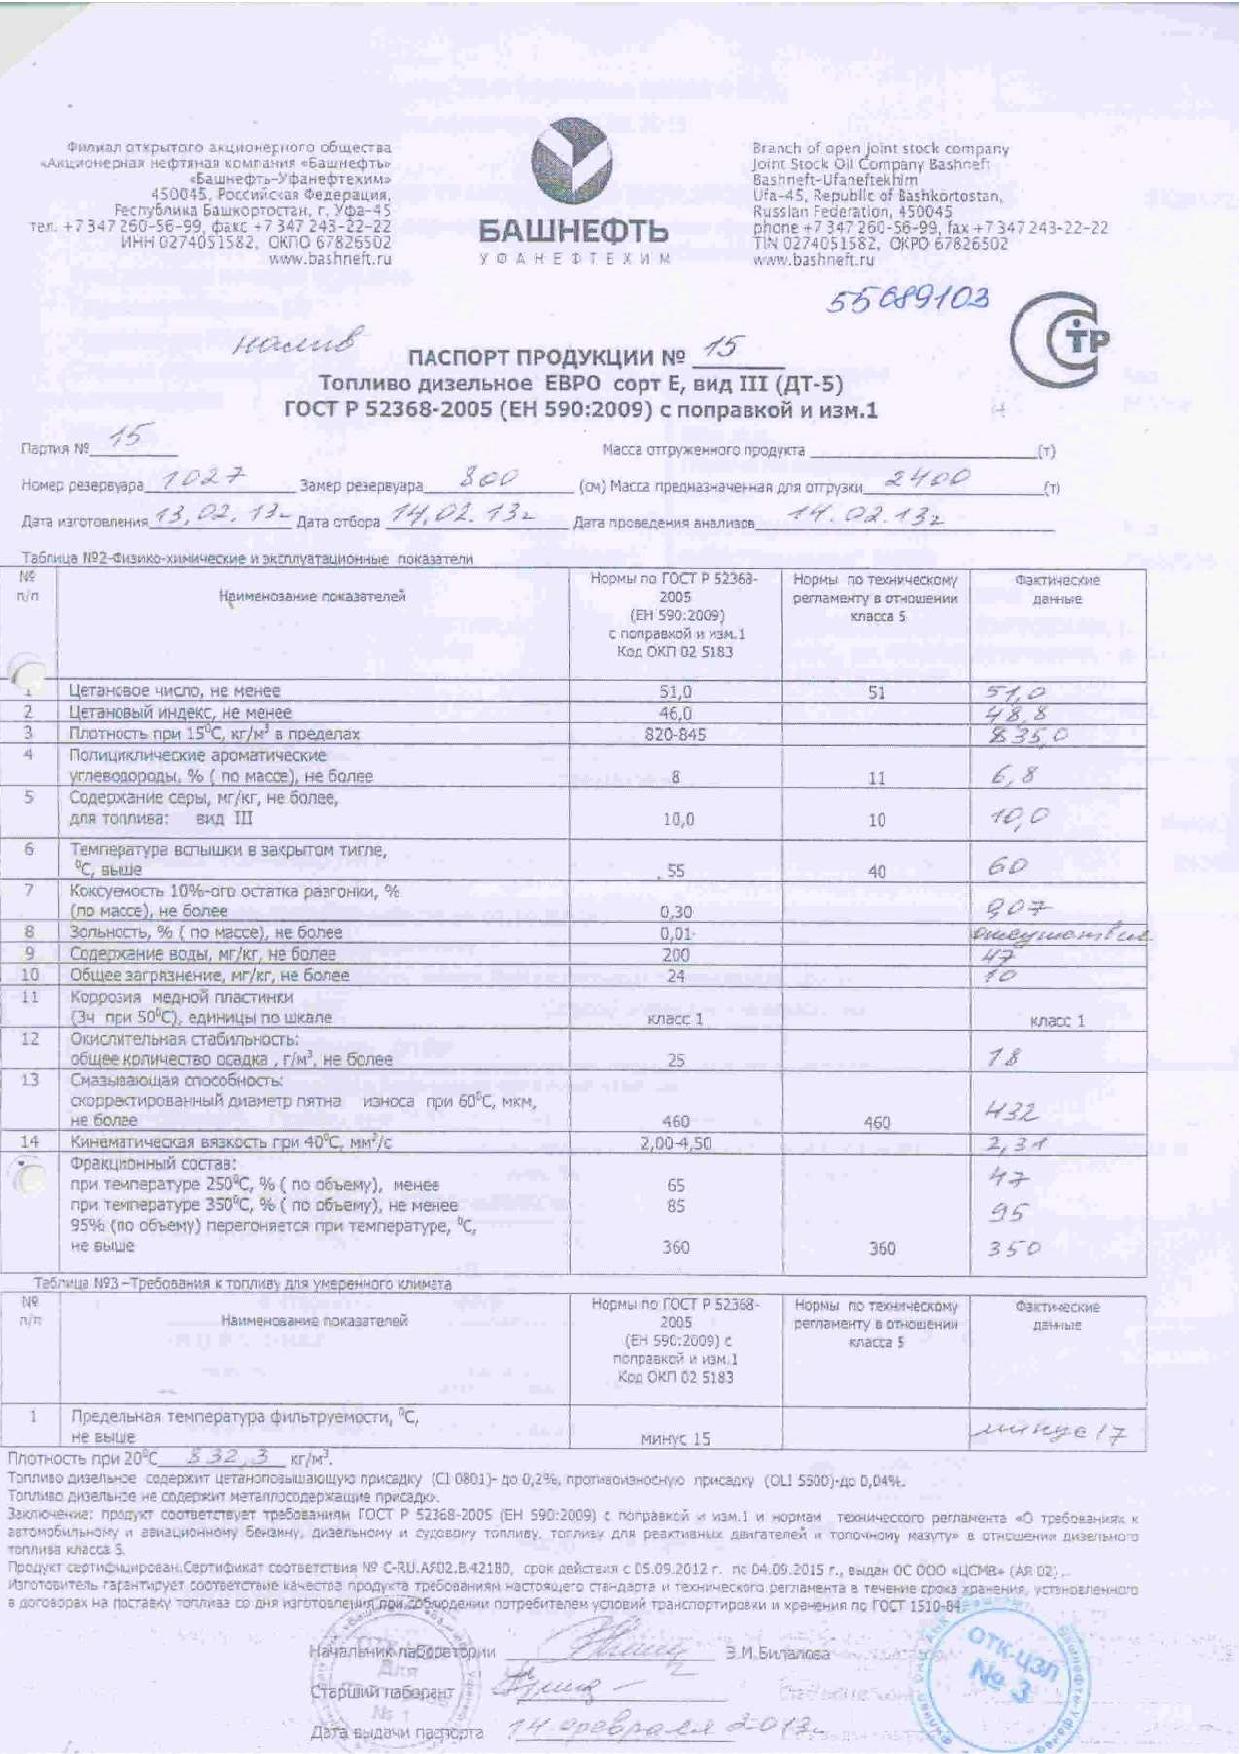 Филиал открытого акционерного общества
«Акционерная нефтяная компания «Башнефть»
«Башнефть-Уфанефтехим»
450045, Российская Федерация,
Республика Башкортостан, г. Уфа-45
тел. +7 347 260-56-99, факс +7 347 243-22-22
ИНН 0274051582, ОКПО 67826502
www.bashneft.ru
БАШНЕФТЬ
УФАНЕФТЕХИМ
Branch of open joint stock company
Joint Stock Oil Company Bashneft
Bashneft-Ufaneftekhim
Ufa-45, Republic of Bashkortostan,
Russian Federation, 450045
phone +7 347 260-56-99, fax +7 347 243-22-22
TIN 0274051582, OKPO 67826502
www.bashneft.ru
55689103
налив
ПАСПОРТ ПРОДУКЦИИ № 15
Топливо дизельное ЕВРО сорт Е, вид III (ДТ-5)
ГОСТ Р 52368-2005 (ЕН 590:2009) с поправкой и изм.1
Партия № 15 Масса отгруженного продукта (т)
Номер резервуара 1027 Замер резервуара 800 (см) Масса предназначенная для отгрузки 2400 (т)
Дата изготовления 13.02.13г Дата отбора 14.02.13г Дата проведения анализов 14.02.13г
Таблица №2-Физико-химические и эксплуатационные показатели
№ п/п Наименование показателей Нормы по ГОСТ Р 52368-2005 (ЕН 590:2009) с поправкой и изм.1 Код ОКП 02 5183 Нормы по техническому регламенту в отношении класса 5 Фактические данные
1 Цетановое число, не менее 51,0 51 51,0
2 Цетановый индекс, не менее 46,0 48,8
3 Плотность при 15⁰С, кг/м³ в пределах 820-845 835,0
4 Полициклические ароматические
углеводороды, % ( по массе), не более 8 11 6,8
5 Содержание серы, мг/кг, не более,
для топлива: вид III 10,0 10 10,0
6 Температура вспышки в закрытом тигле,
⁰С, выше 55 40 60
7 Коксуемость 10%-ого остатка разгонки, %
(по массе), не более 0,30 0,07
8 Зольность, % ( по массе), не более 0,01 отсутствие
9 Содержание воды, мг/кг, не более 200 47
10 Общее загрязнение, мг/кг, не более 24 10
11 Коррозия медной пластинки
(3ч при 50⁰С), единицы по шкале класс 1 класс 1
12 Окислительная стабильность:
общее количество осадка , г/м³, не более 25 18
13 Смазывающая способность:
скорректированный диаметр пятна износа при 60⁰С, мкм,
не более 460 460 432
14 Кинематическая вязкость при 40⁰С, мм²/с 2,00-4,50 2,31
Фракционный состав:
при температуре 250⁰С, % ( по объему), менее 65 47
при температуре 350⁰С, % ( по объему), не менее 85 95
95% (по объему) перегоняется при температуре, ⁰С,
не выше 360 360 350
Таблица №3 –Требования к топливу для умеренного климата
№ п/п Наименование показателей Нормы по ГОСТ Р 52368-2005 (ЕН 590:2009) с поправкой и изм.1 Код ОКП 02 5183 Нормы по техническому регламенту в отношении класса 5 Фактические данные
1 Предельная температура фильтруемости, ⁰С,
не выше минус 15 минус 17
Плотность при 20⁰С 832,3 кг/м³.
Топливо дизельное содержит цетаноповышающую присадку (CI 0801)- до 0,2%, противоизносную присадку (OLI 5500)-до 0,04%.
Топливо дизельное не содержит металлосодержащие присадки.
Заключение: продукт соответствует требованиям ГОСТ Р 52368-2005 (ЕН 590:2009) с поправкой и изм.1 и нормам технического регламента «О требованиях к
автомобильному и авиационному бензину, дизельному и судовому топливу, топливу для реактивных двигателей и топочному мазуту» в отношении дизельного
топлива класса 5.
Продукт сертифицирован.Сертификат соответствия № C-RU.АЯ02.В.42180, срок действия с 05.09.2012 г. по 04.09.2015 г., выдан ОС ООО «ЦСМВ» (АЯ 02).
Изготовитель гарантирует соответствие качества продукта требованиям настоящего стандарта и технического регламента в течение срока хранения, установленного
в договорах на поставку топлива со дня изготовления при соблюдении потребителем условий транспортировки и хранения по ГОСТ 1510-84.
Начальник лаборатории Э.М.Билалова
Старший лаборант
Дата выдачи паспорта 14 февраля 2013г.
Для
№ 1
ОТК-ЦЗЛ
№ 3